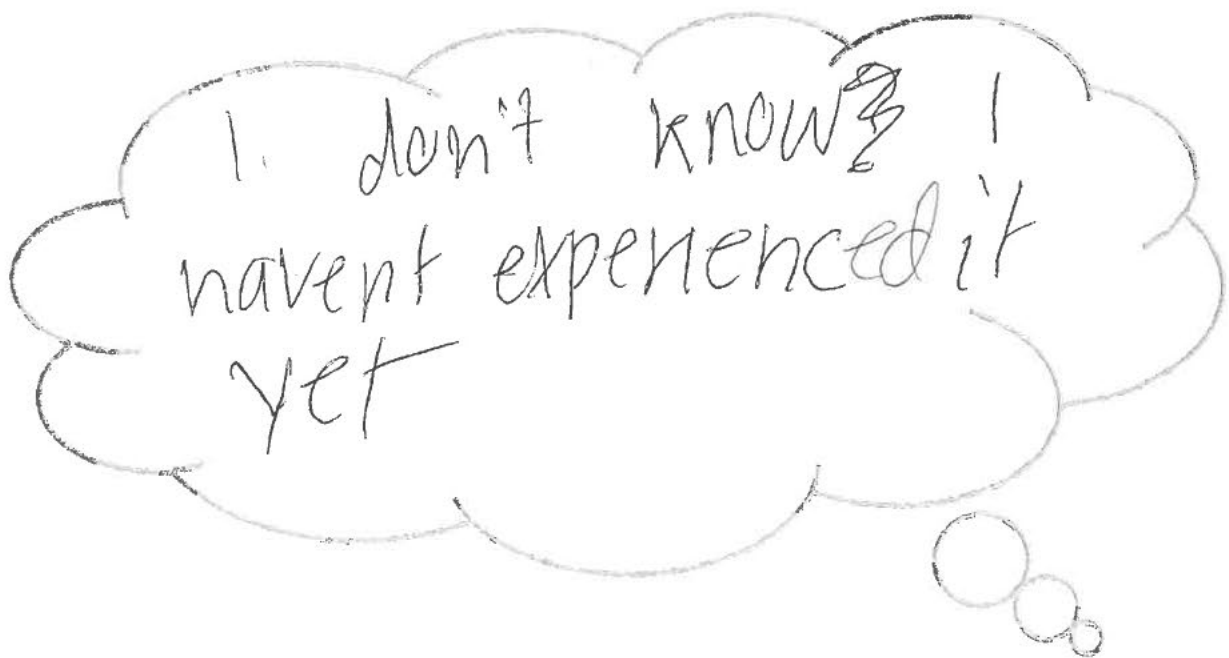 I don't know? I
havent experienced it
yet